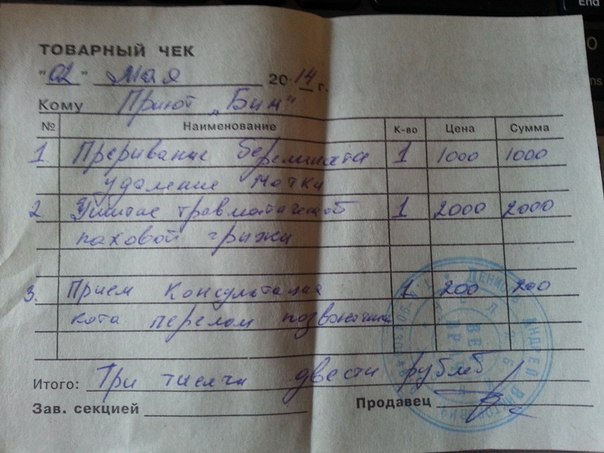 ТОВАРНЫЙ ЧЕК
"02" Мая 2014 г.
Кому Приют „Бим“
№ Наименование К-во Цена Сумма
1. Прерывание беременности 1 1000 1000
удаление матки
2. травматической 1 2000 2000
паховой грыжи
3. Прием консультация 1 200 200
кота перелом позвоночника
Итого: Три тысячи двести рублей
Зав. секцией Продавец